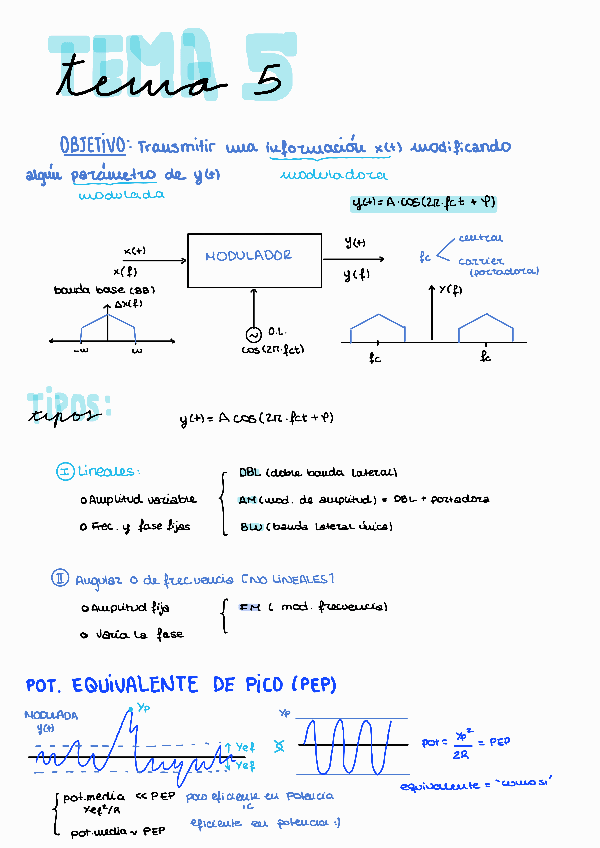 TEMA 5
tema 5
OBJETIVO: Transmitir una información x(t) modificando
algún parámetro de y(t) moduladora
modulada
y(t) = A·cos(2π·fct + φ)
x(t)
x(f)
MODULADOR
y(t)
y(f)
fc
central
carrier
(portadora)
banda base (BB)
ΔX(f)
-w
w
O.L.
cos(2π·fct)
Y(f)
fc
fc
TIPOS:
tipos
y(t) = A cos(2π·fct + φ)
I Lineales:
DBL (doble banda lateral)
o Amplitud variable
AM (mod. de amplitud) = DBL + portadora
o Frec. y fase fijas
BLU (banda lateral única)
II Angular o de frecuencia [NO LINEALES]
o Amplitud fija
FM ( mod. frecuencia)
o Varía la fase
POT. EQUIVALENTE DE PICO (PEP)
MODULADA
y(t)
Yp
Yef
Yef
Yp
pot = Yp²/2R = PEP
equivalente = "como si"
pot.media << PEP poco eficiente en potencia
Yef²/R
pot.media ~ PEP eficiente en potencia :)